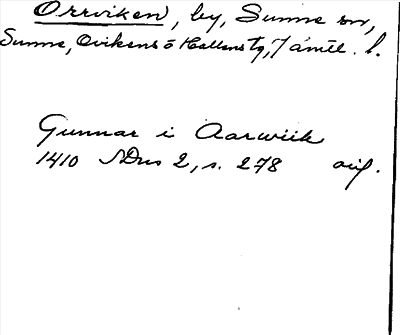 Orrviken, by, Sunne sn,
Sunne, Ovikens o Hallens tg, Jämtl. l.
Gunnar i Aarwiik
1410 SDns 2, s. 278 orig.